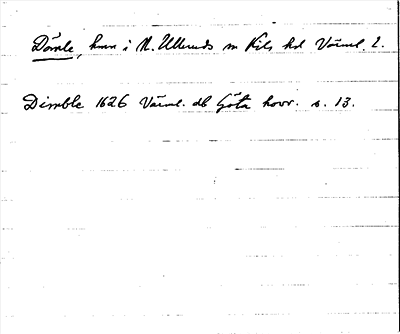 Dömle, hmn i N. Ulleruds sn Kils hd Värml. l.
Dimble 1626 Värml. db Göta hovr. s. 13.